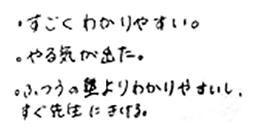 ・すごくわかりやすい。
。やる気が出た。
。ふつうの塾よりわかりやすいし、
すぐ先生にきける。